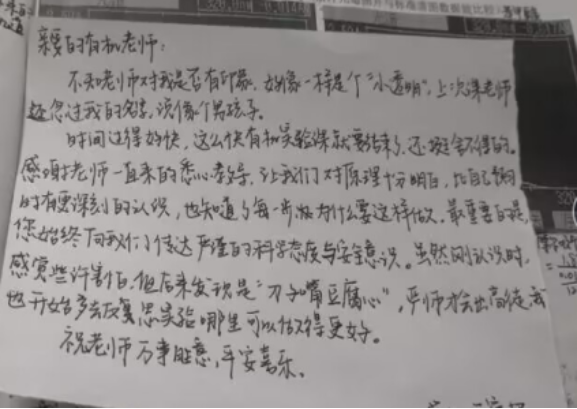 亲爱的有机老师:
不知老师对我是否有印象，好像一样是个“小透明”，上次课老师
还念过我的名字，说像个男孩子。
时间过得好快，这么快有机实验课就要结束了，还挺舍不得的。
感谢老师一直来的悉心教导，让我们对原理十分明白，比自己预
时有更深刻的认识，也知道了每一步为什么要这样做。最重要的是，
您始终向我们传达严谨的科学态度与安全意识。虽然刚认识时，
感觉些许害怕，但后来发现是“刀子嘴豆腐心”，严师才会出高徒，我
也开始多去反复思实验哪里可以做得更好。
祝老师万事胜意，平安喜乐。